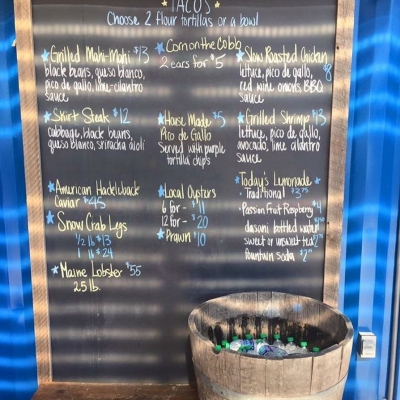 TACOS
Choose 2 flour tortillas or a bowl
Grilled Mahi-Mahi $13
black beans, queso blanco,
pico de gallo, lime-cilantro
sauce
Skirt Steak $12
cabbage, black beans,
queso blanco, sriracha aioli
American Hackleback
Caviar $45
Snow Crab Legs
1/2 lb $13
1 lb $24
Maine Lobster $55
2.5 lb.
Corn on the Cobb
2 ears for $5
House Made $5
Pico de Gallo
Served with purple
tortilla chips
Local Oysters
6 for - $11
12 for - $20
Prawn $10
Slow Roasted Chicken
lettuce, pico de gallo, $8
red wine onions, BBQ
sauce
Grilled Shrimp $13
lettuce, pico de gallo,
avocado, lime cilantro
sauce
Today's Lemonade
Traditional $3.75
Passion Fruit Raspberry $4
dasani bottled water
sweet or unsweet tea
fountain soda